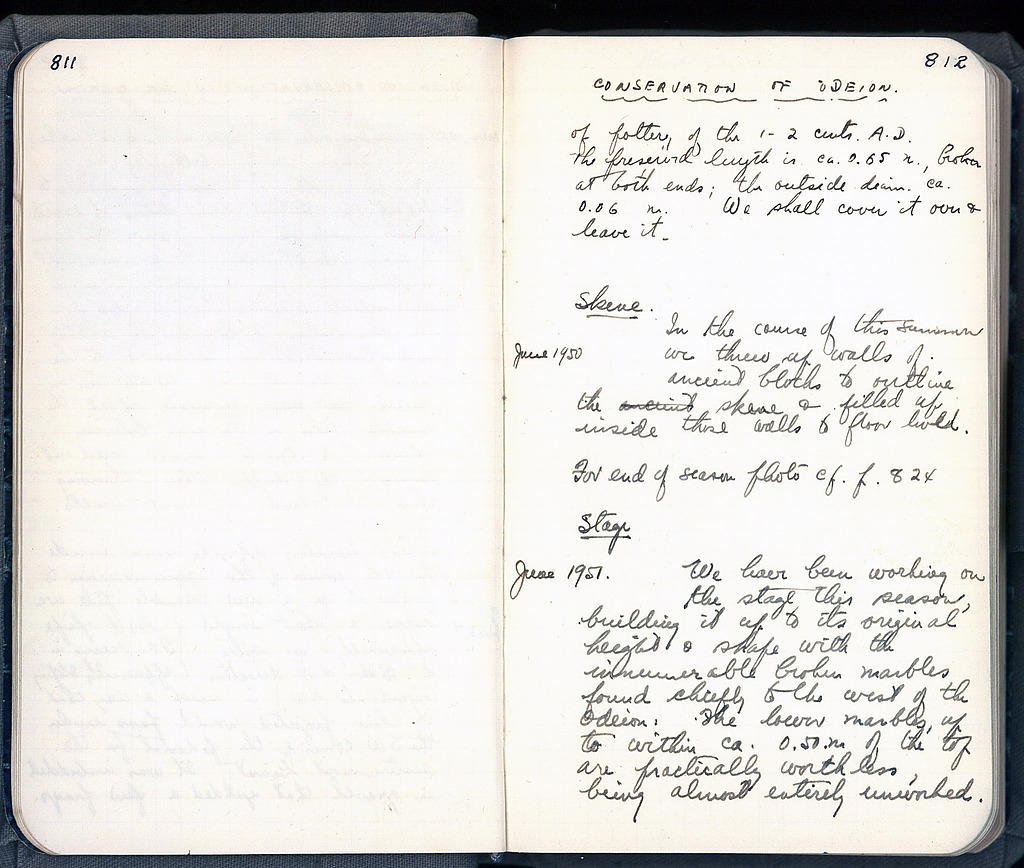 811
812
CONSERVATION OF ODEION.
of pottery of the 1-2 cents. A.D.
The preserved length is ca. 0.65 m., broken
at both ends; the outside diam. ca.
0.06 m. We shall cover it over &
leave it.
Skene.
In the course of this summer
June 1950 we threw up walls of
ancient blocks to outline
the ancient skene & filled up
inside these walls to floor level.
For end of season photo cf. p. 824
Stage
June 1951. We have been working on
the stage this season,
building it up to its original
height & shape with the
innumerable broken marbles
found chiefly to the west of the
Odeion. The lower marbles, up
to within ca. 0.50 m of the top
are practically worthless,
being almost entirely unworked.